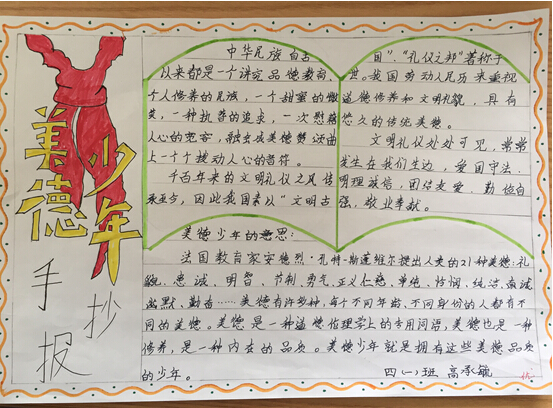 美德少年
手抄报
中华民族自古
以来都是一个讲究品德教育、
个人修养的民族，一个甜蜜的微
笑，一种执着的追求，一次慰藉
人心的宽容，融出成美德赞颂曲
上一个个拨动人心的音符。
千百年来的文明礼仪之风传
承至今，因此我国素以“文明古
国”、“礼仪之邦”著称于
世。我国劳动人民历来重视
道德修养和文明礼貌，具有
悠久的传统美德。
文明礼仪处处可见，常常
发生在我们生边，爱国守法、
明理诚信，团结友爱、勤俭自
强，敬业奉献。
美德少年的意思：
法国教育家安德烈·孔特-斯蓬维尔提出人类的21种美德：礼
貌、忠诚、明智、节制、勇气、正义、仁慈、单纯、怜悯、纯洁、真诚
幽默、勤奋……美德有许多种，每个不同年龄，不同身份的人都有不
同的美德。美德是一种道德伦理学上的专用词语，美德也是一种
修养，是一种内在的品质。美德少年就是拥有这些美德品质
的少年。
四（一）班 高承毓
优